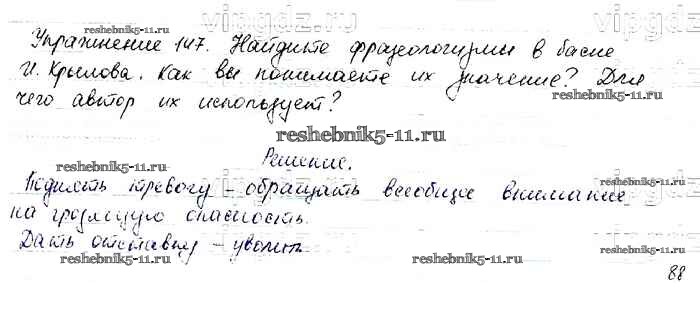 vipgdz.ru
reshebnik5-11.ru
vipgdz
Упражнение 147. Найдите фразеологизмы в басне
И. Крылова. Как вы понимаете их значение? Для
чего автор их использует?
reshebnik5-11.ru
reshebnik5-11.ru
Решение.
reshebnik5-11.ru
Поднять тревогу – обращать всеобщее внимание
на грозящую опасность.
vipgdz.ru
vipgdz
Дать отставку – уволить
reshebnik5-11.ru
reshebnik5-11.ru
88